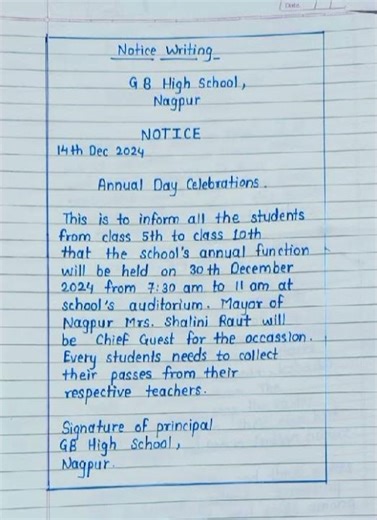 Notice Writing
GB High School,
Nagpur
NOTICE
14th Dec 2024
Annual Day Celebrations.
This is to inform all the students
from class 5th to class 10th
that the school's annual function
will be held on 30th December
2024 from 7:30 am to 11 am at
school's auditorium. Mayor of
Nagpur Mrs. Shalini Raut will
be Chief Guest for the occassion.
Every students needs to collect
their passes from their
respective teachers.
Signature of principal
GB High School,
Nagpur.